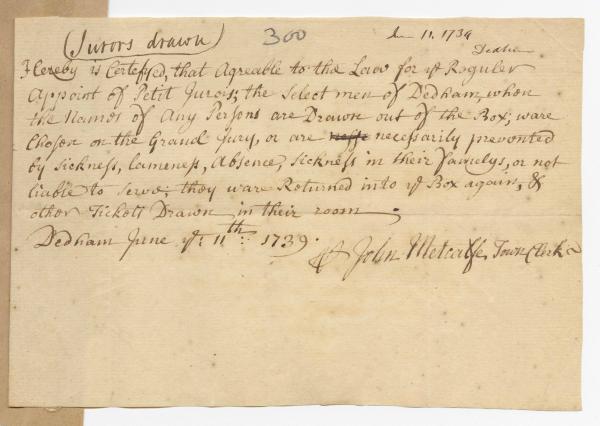 (Jurors drawn) 300 Jun 11. 1739
Dedham
Hereby is Certefyed, that Agreable to the Law for yͤ Reguler
Appoint of Petit Jurors, the Select men of Dedham, when
the Names of Any Persons are Drawn out of the Box, ware
Chosen on the Grand Jury, or are necessarily prevented
by Sickness, Lameness, Absence, Sickness in their Familys, or not
liable to Serve, they ware Returned into yͤ Box again, &
other Tickett Drawn in their room.
Dedham June yͤ 11th: 1739.
John Metcalfe, Town Clerk